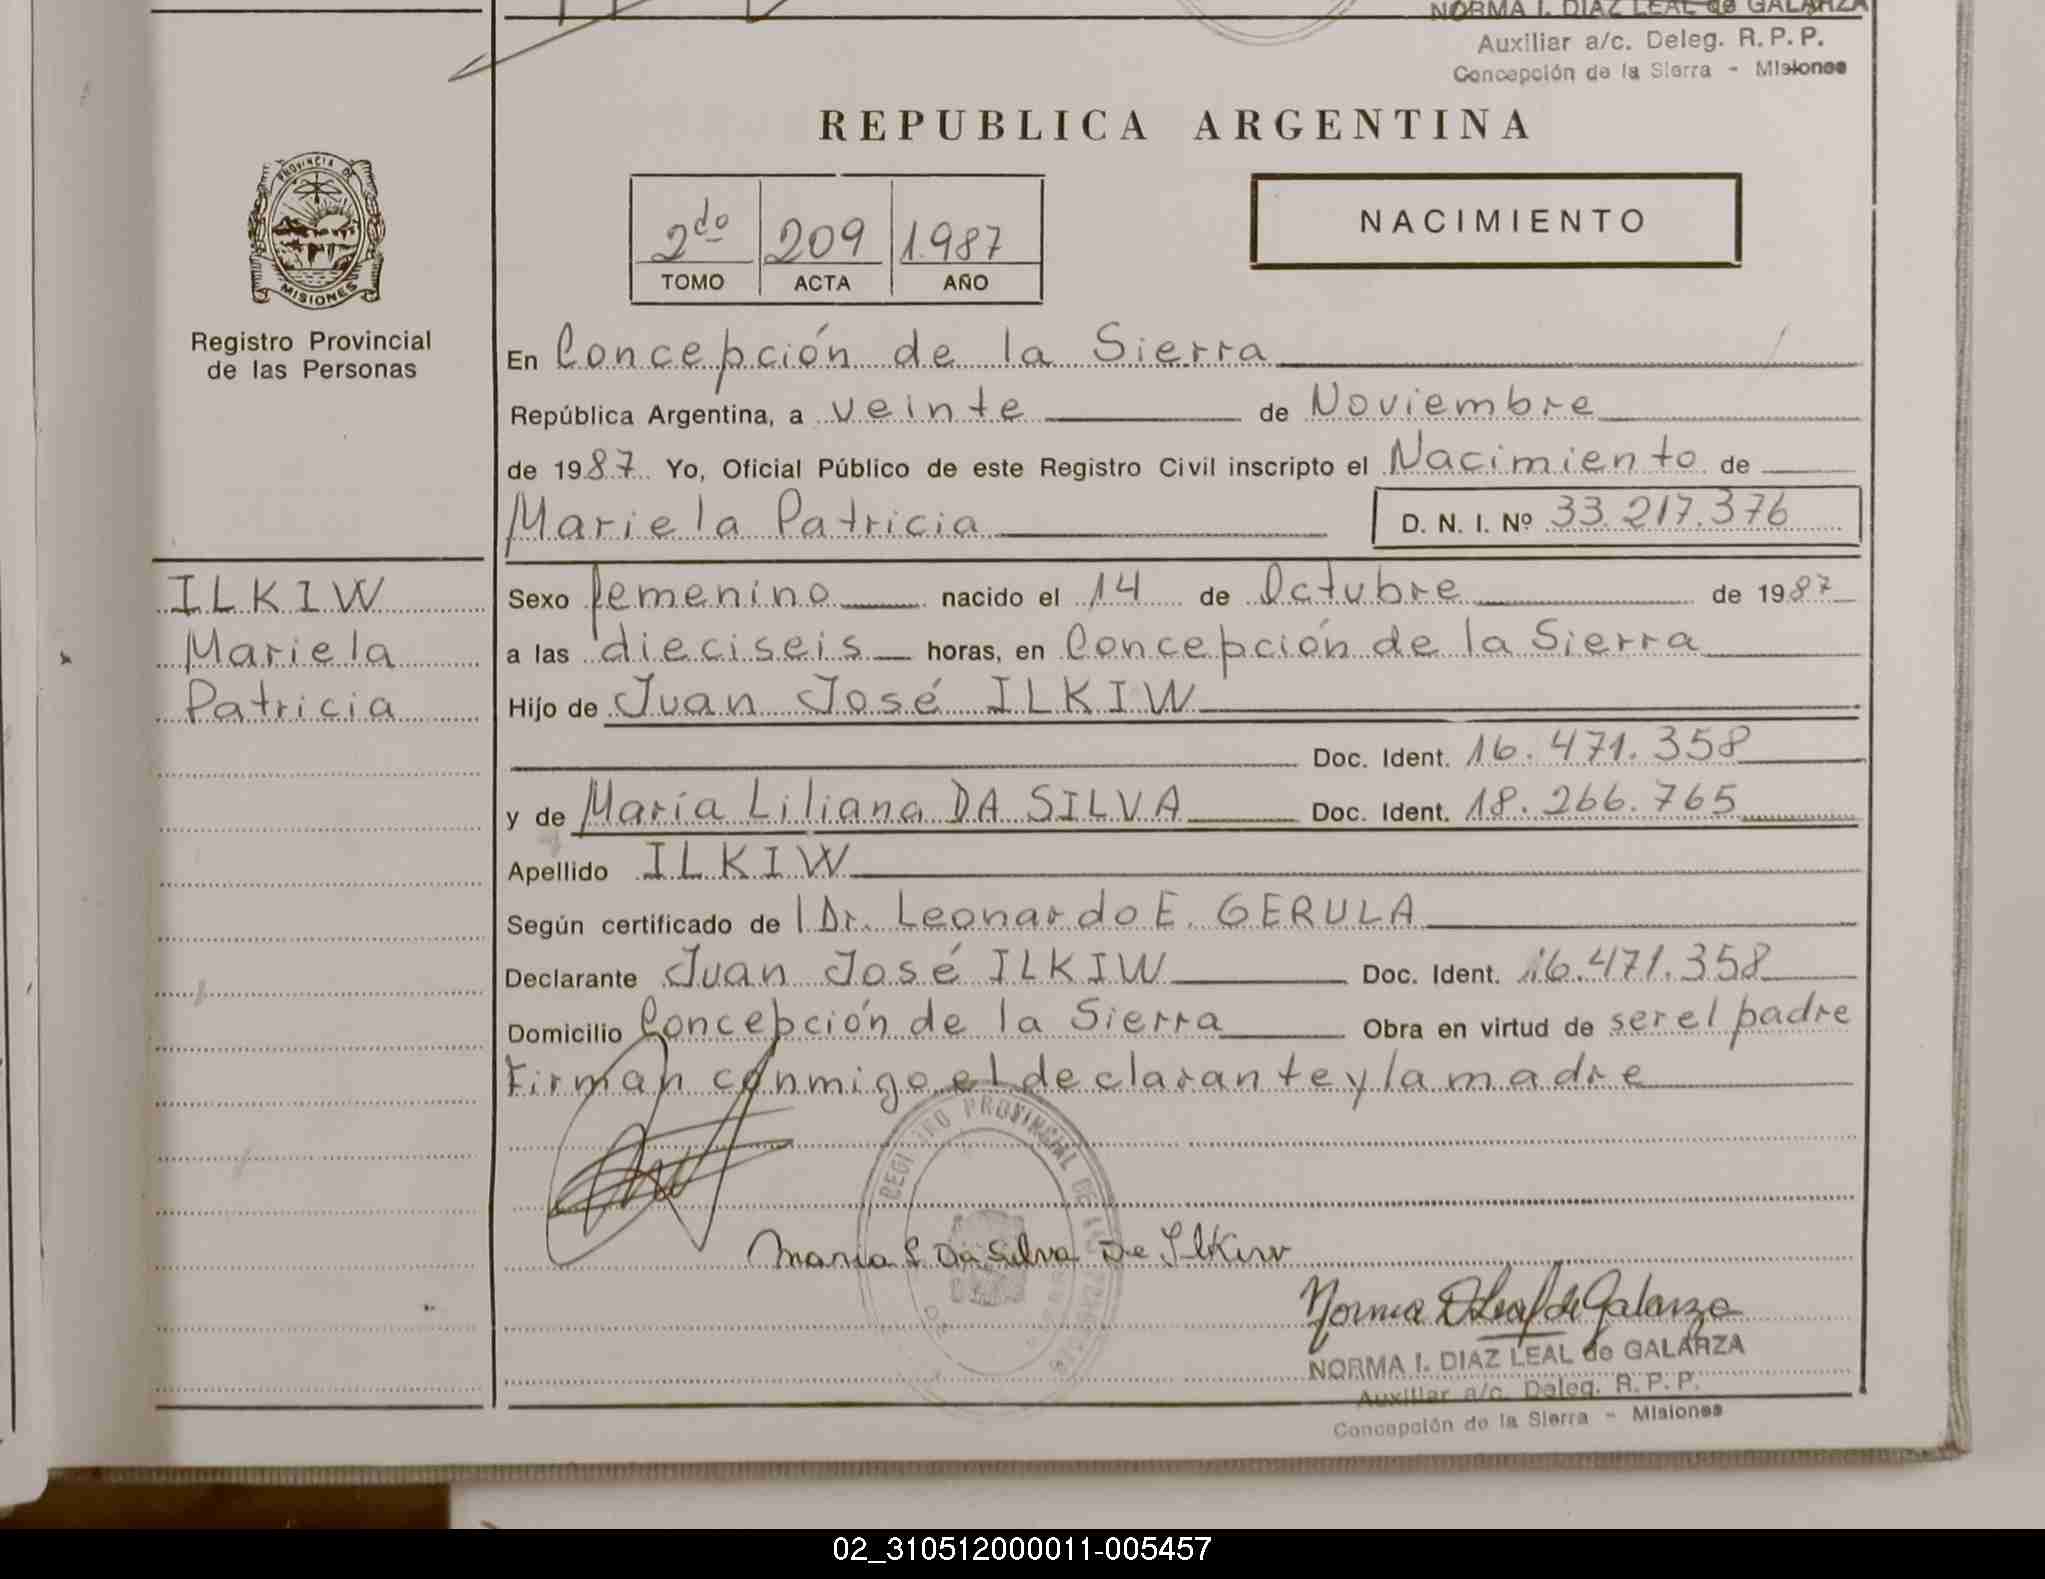 NORMA I. DIAZ LEAL de GALARZA
Auxiliar a/c. Deleg. R. P. P.
Concepción de la Sierra - Misiones
REPUBLICA ARGENTINA
PROVINCIA DE
MISIONES
Registro Provincial
de las Personas
2do 209 1.987
TOMO ACTA AÑO
NACIMIENTO
En Concepción de la Sierra
República Argentina, a veinte de Noviembre
de 1987 Yo, Oficial Público de este Registro Civil inscripto el Nacimiento de
Mariela Patricia D. N. I. Nº 33.217.376
ILKIW
Mariela
Patricia
Sexo femenino nacido el 14 de Octubre de 1987
a las dieciseis horas, en Concepción de la Sierra
Hijo de Juan José ILKIW
Doc. Ident. 16.471.358
y de María Liliana DA SILVA Doc. Ident. 18.266.765
Apellido ILKIW
Según certificado de Dr. Leonardo E. GERULA
Declarante Juan José ILKIW Doc. Ident. 16.471.358
Domicilio Concepción de la Sierra Obra en virtud de ser el padre
Firman conmigo el declarante y la madre
REGISTRO PROVINCIAL DE LAS PERSONAS
Maria L Da Silva De Ilkiw
Norma D Leal de Galarza
NORMA I. DIAZ LEAL de GALARZA
Auxiliar a/c. Deleg. R. P. P.
Concepción de la Sierra - Misiones
02_310512000011-005457